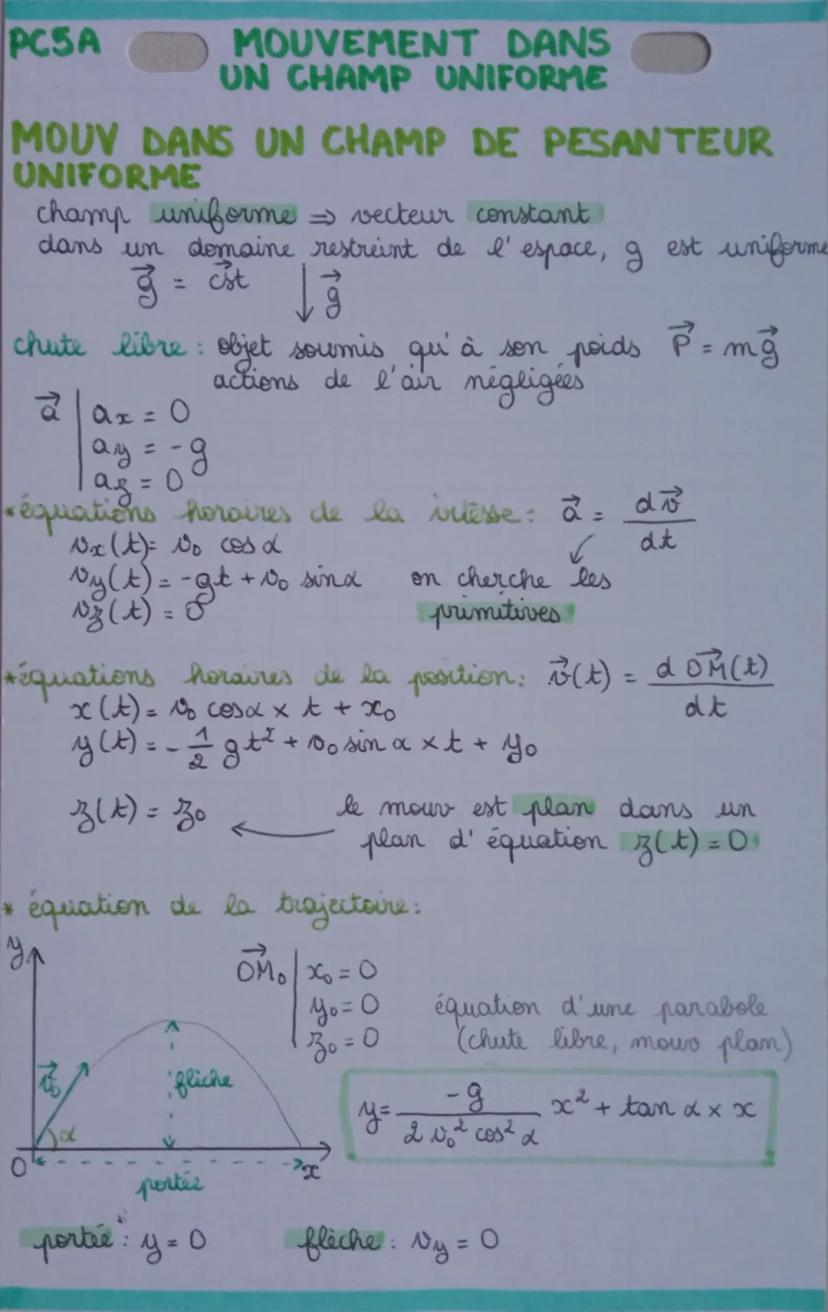 PC5A MOUVEMENT DANS
UN CHAMP UNIFORME
MOUV DANS UN CHAMP DE PESANTEUR
UNIFORME
champ uniforme ⇒ vecteur constant
dans un domaine restreint de l'espace, g est uniforme
g⃗ = cst⃗ ↓ g⃗
chute libre : objet soumis qu'à son poids P⃗ = mg⃗
actions de l'air négligées
a⃗ | ax = 0
ay = -g
az = 0
*équations horaires de la vitesse : a⃗ = dv⃗/dt
vx(t) = v₀ cos α
vy(t) = -gt + v₀ sin α on cherche les
vz(t) = 0 primitives
*équations horaires de la position : v⃗(t) = d OM⃗(t)/dt
x(t) = v₀ cos α × t + x₀
y(t) = - 1/2 gt² + v₀ sin α × t + y₀
z(t) = z₀ ← le mouv est plan dans un
plan d'équation z(t) = 0
* équation de la trajectoire :
y
OM₀⃗ | x₀ = 0
y₀ = 0 équation d'une parabole
z₀ = 0 (chute libre, mouv plan)
v₀⃗ flèche
y = -g/(2 v₀² cos² α) x² + tan α × x
α
O x
portée
portée : y = 0 flèche : vy = 0